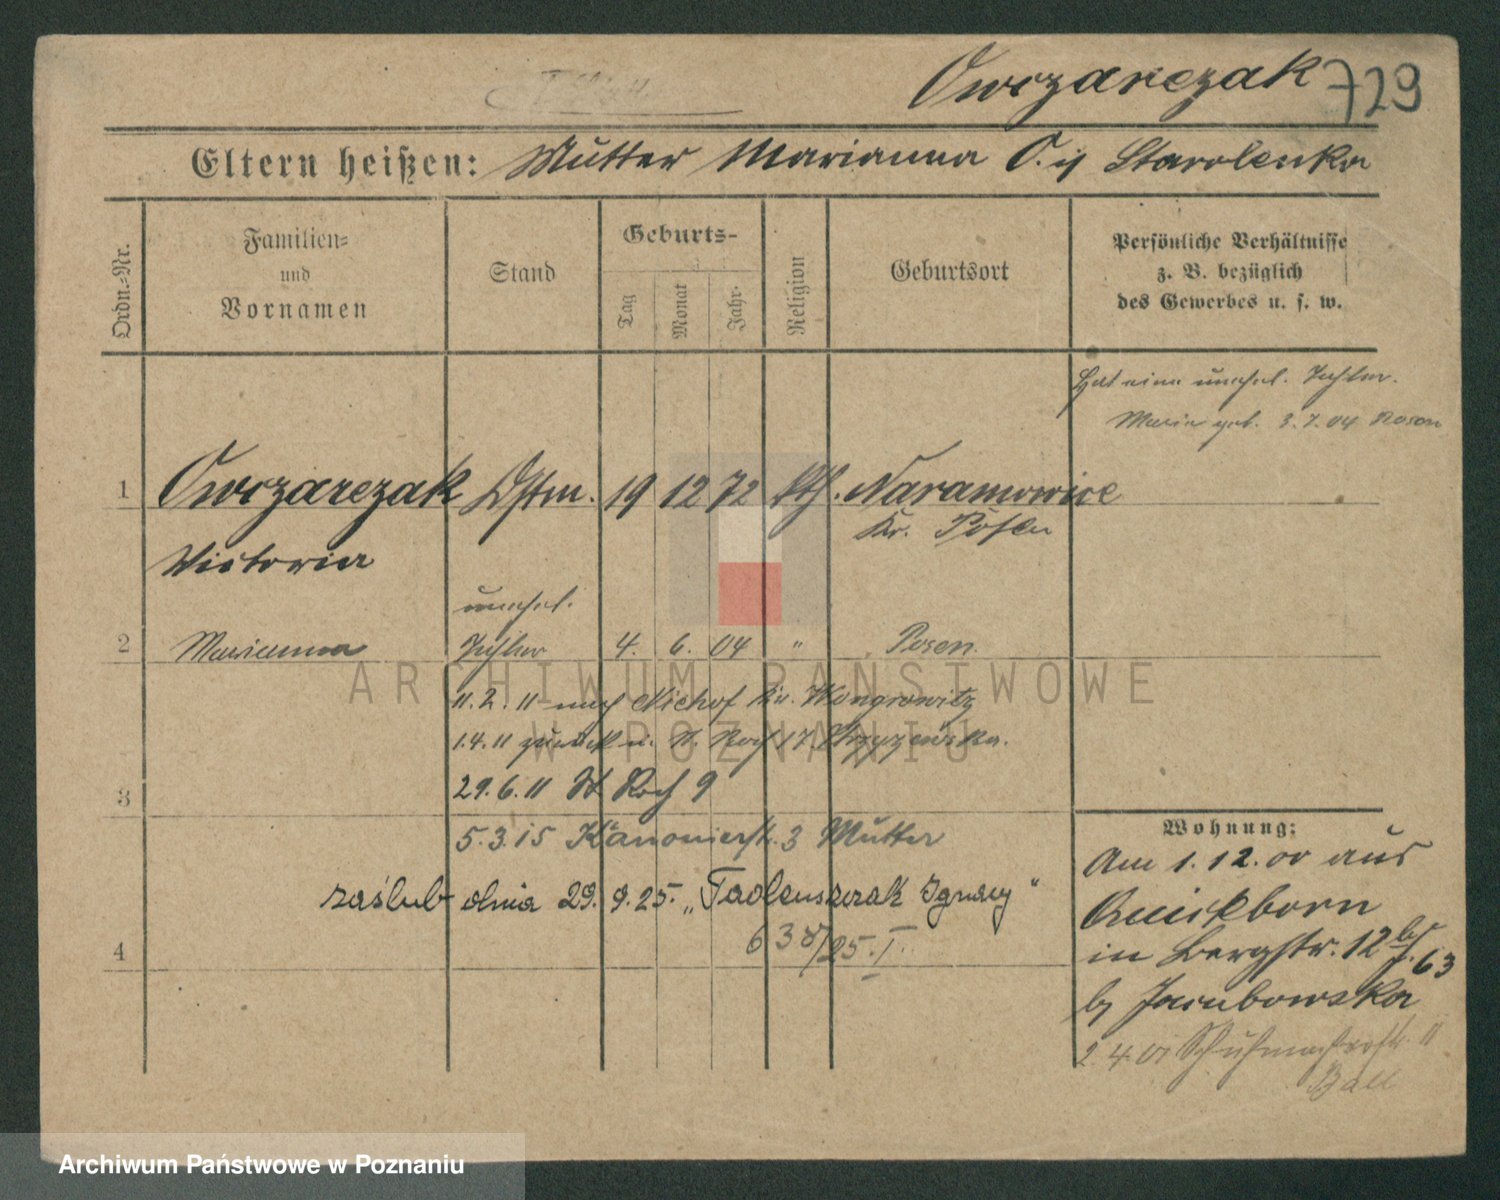 Owczarczak 729
Eltern heißen: Mutter Marianna O. in Starolenka
Ordn.-Nr.
Familien-
und
Vornamen
Stand
Geburts-
Tag
Monat
Jahr
Religion
Geburtsort
Persönliche Verhältnisse
z. B. bezüglich
des Gewerbes u. s. w.
Hat eine unehel. Tochter.
Maria geb. 3.7.04 Posen
1 Owczarczak Dstm. 19 12 72 kth. Naramowice
Kr. Posen
Victoria
unehel.
2 Marianna Tochter 4. 6. 04 " Posen.
11.2.11 nach Kr. Wongrowitz
1.4.11 zurück n. St. Roch 17
3 29.6.11 St Roch 9
5.3.15 Kanonierstr. 3 Mutter
zaślub dnia 29.9.25. Ignacy"
638/25.I.
4
Wohnung:
Am 1.12.00 aus
Quickborn
in Bergstr. 12 b/
J. 63
b/ Jacubowska
2.4.01 Schuhmacherstr. 11
Ball
ARCHIWUM PAŃSTWOWE
W POZNANIU
Archiwum Państwowe w Poznaniu